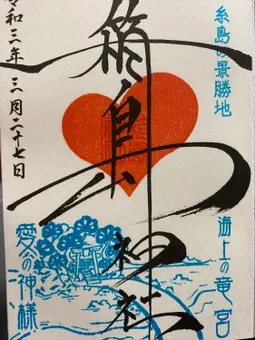 糸島の景勝地
海上の竜宮
箱島神社
令和三年 三月二十七日
愛の神様